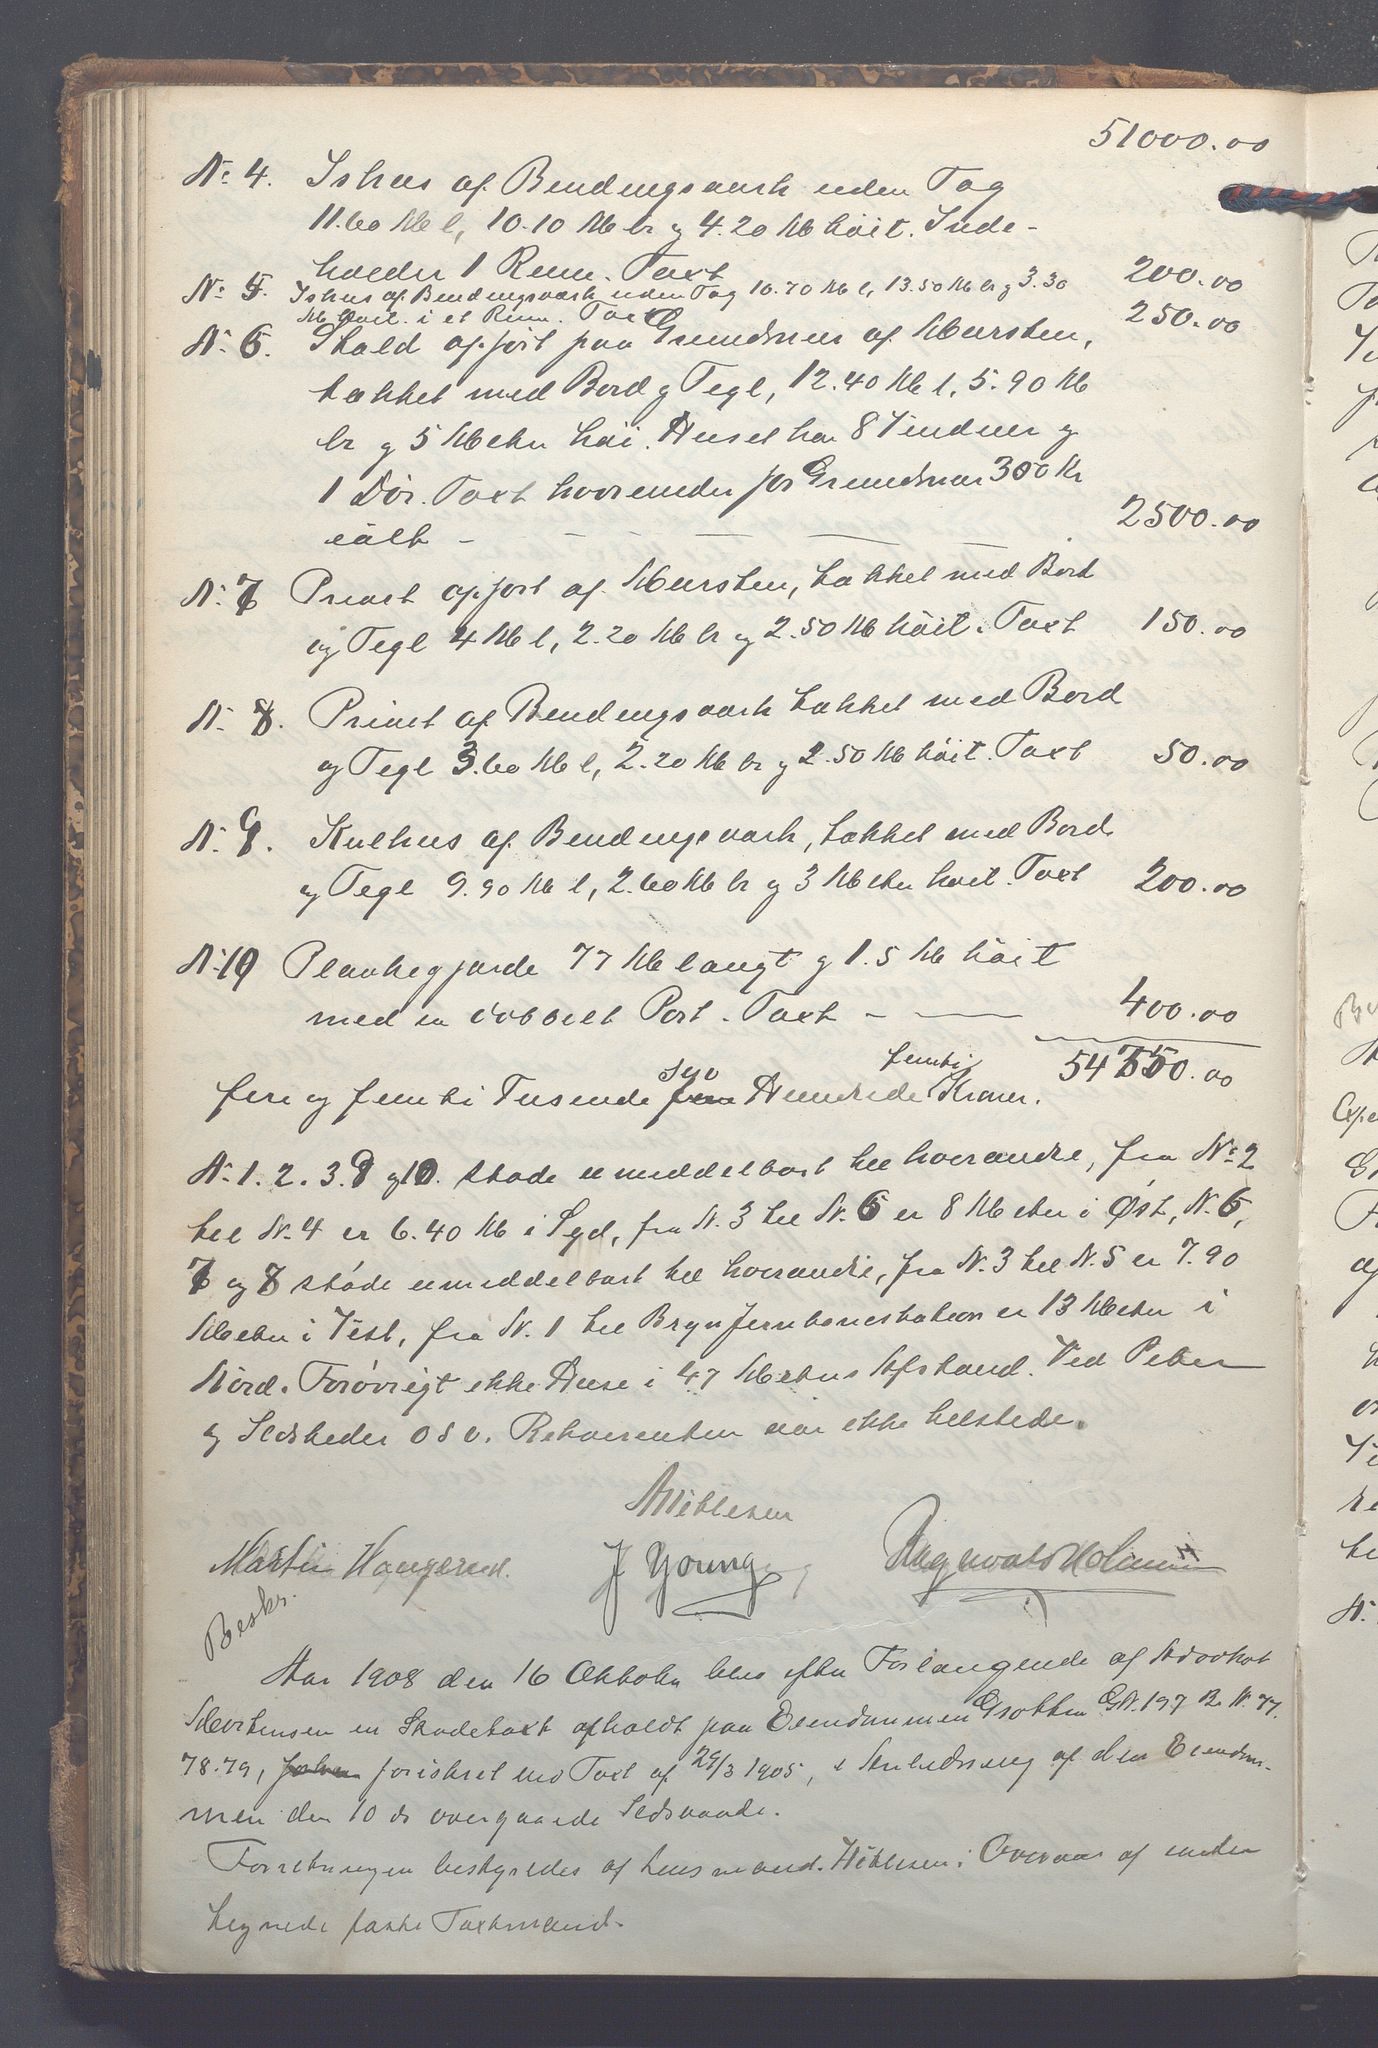 51000.00
No 4. Ishus af Bendingsværk uden Tag
11.60 M l, 10.10 M br og 4.20 M höit. Inde-
holder 1 Rum. Taxt 200.00
No 5. Ishus af Bendingsværk uden Tag 16.70 M l, 13.50 M br og 3.30
M höit i et Rum. Taxt 250.00
N. 6. Stald opført paa Grundmur af Mursten,
tækket med Bord og Tegl, 12.40 M l, 5.90 M
br og 5 Meter höi. Huset har 8 Vinduer og
1 Dør. Taxt hvorunder for Grundmur 300 Kr
ialt - 2500.00
N. 7 Privet opført af Mursten, tækket med Bord
og Tegl 4 M l, 2.20 M br og 2.50 M höit. Taxt 150.00
N. 8. Privet af Bendingsværk tækket med Bord
og Tegl 3.60 M l, 2.20 M br og 2.50 M höit. Taxt 50.00
N. 9. Kulhus af Bendingsværk, tækket med Bord
og Tegl 9.90 M l, 2.60 M br og 3 Meter höit. Taxt 200.00
N. 10 Plankegjærde 77 M langt og 1.5 M höit
med en dobbelt Port. Taxt - 400.00
54750.00
fire og femti Tusende syv Hundrede femti Kroner.
N. 1. 2. 3. 9 og 10. støde umiddelbart til hverandre, fra No 2
til N. 4 er 6.40 M i Syd, fra N. 3 til N. 6 er 8 Meter i Øst, N. 6,
7 og 8 støde umiddelbart til hverandre, fra N. 3 til N. 5 er 7.90
Meter i Vest, fra N. 1 til Bryn Jernbanestation er 13 Meter i
Nörd. Forøvrigt ikke Huse i 47 Meters Afstand. Ved Piber
og Ildsteder osv. Rekvirenten var ikke tilstede.
Martin Haugerud. J Young
Beskr.
Aar 1908 den 16 Oktober blev efter Forlangende af Advokat
Mortensen en Skadetaxt afholdt paa Eiendommen Grotten G.N. 197 B. N. 77.
78.79, forsikret ved Taxt af 29/3 1905, i Anledning af den Eiendom-
men den 10 ds overgaaede Ildsvaade.
Forretningen bestyredes af Lensmand i Overvær af under
tegnede faste Taxtmænd.